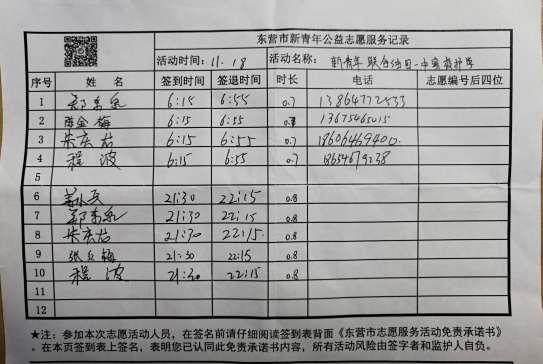 东营市新青年公益志愿服务记录
活动时间: 11.18 活动名称: 新青年
序号 姓 名 签到时间 签退时间 时长 电话 志愿编号后四位
1 6:15 6:55 0.7 13864772533
2 6:15 6:55 0.7 13675465015
3 朱宏岩 6:15 6:55 0.7
4 程波 6:15 6:55 0.7
5
6 21:30 22:15 0.8
7 21:30 22:15 0.8
8 朱宏岩 21:30 22:15 0.8
9 21:30 22:15 0.8
10 程波 21:30 22:15 0.8
11
12
★注: 参加本次志愿活动人员,在签名前请仔细阅读签到表背面《东营市志愿服务活动免责承诺书》
。在本页签到表上签名,表明您已认同此免责承诺书内容,所有活动风险由签字者和监护人自负。